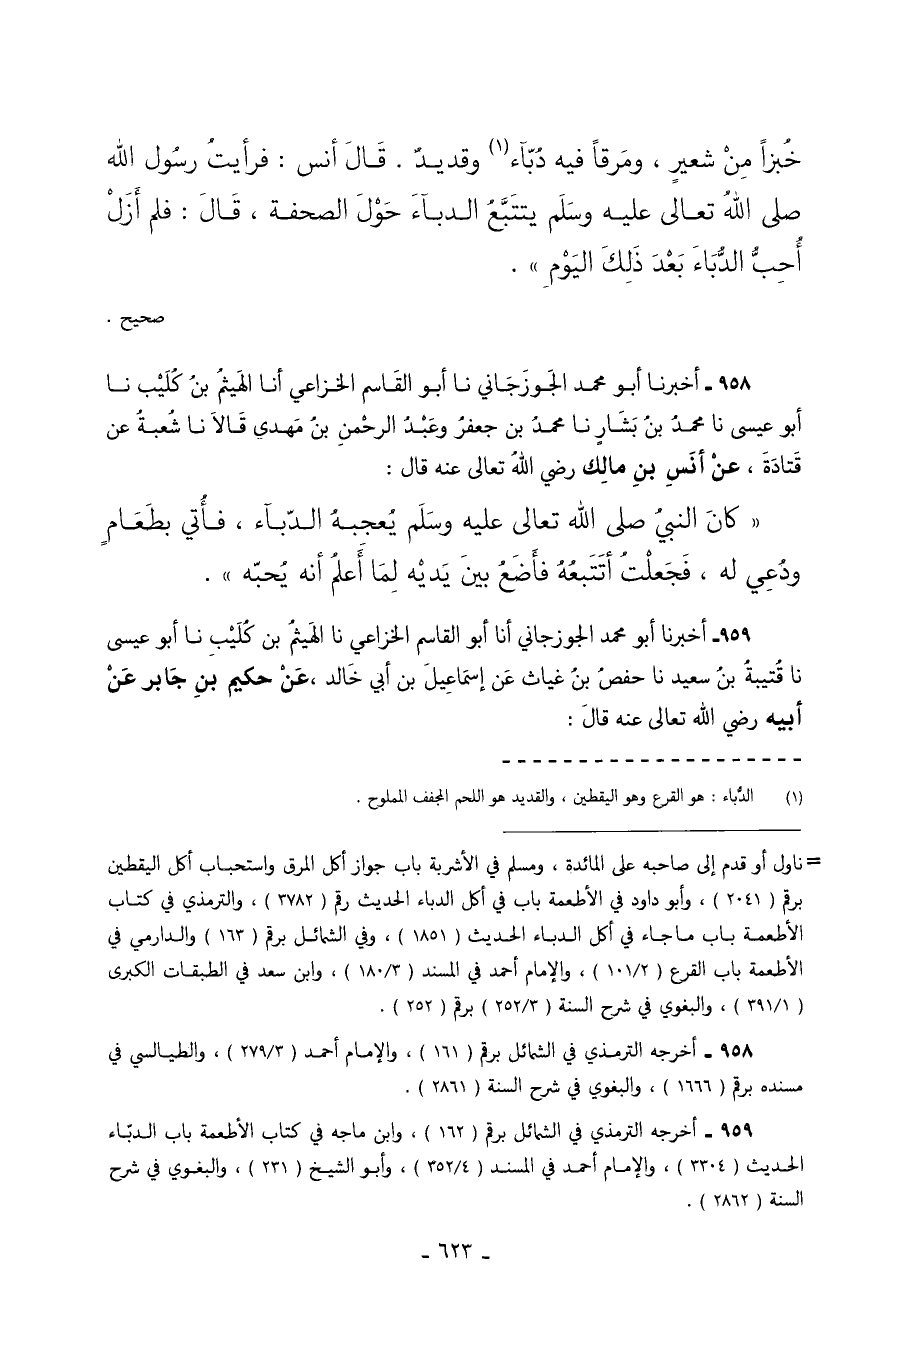 خُبزاً مِنْ شعيرٍ ، ومَرقاً فيه دُبّآء(١) وقديدٌ . قَالَ أنس : فرأيتُ رسُول الله
صلى اللهُ تعالى عليه وسَلَم يتتَبَّعُ الدبآءَ حَوْلَ الصحفة ، قَالَ : فلم أَزَلْ
أُحِبُّ الدُّبَاءَ بَعْدَ ذَلِكَ اليَوْمِ » .
صحيح .
٩٥٨ ـ أخبرنا أبو محمد الجَوزجَاني نا أبو القَاسم الخزاعي أنا الهَيثمُ بنُ كُلَيْب نا
أبو عيسى نا محمدُ بنُ بَشَارٍ نا محمدُ بن جعفرُ وعَبْدُ الرحمْنِ بنُ مَهدي قَالاَ نا شُعبةُ عن
قَتادَةَ ، عنْ أنَسِ بنِ مالِك رضي اللهُ تعالى عنه قال :
« كانَ النبيُ صلى الله تعالى عليه وسَلَم يُعجبهُ الدّبآء ، فأُتي بطَعَامٍ
ودُعِي له ، فَجعلْتُ أتَتَبعُهُ فأَضَعُ بينَ يَديْه لِمَا أَعلمُ أنه يُحبّه » .
٩٥٩ـ أخبرنا أبو محمد الجوزجاني أنا أبو القاسم الخزاعي نا الهَيثمُ بن كُلَيْبٍ نا أبو عيسى
نا قُتيبةُ بنُ سعيد نا حفصُ بنُ غياث عَن إسمَاعيلَ بن أبي خَالد ،عَنْ حكيم بنِ جَابر عَنْ
أبيه رضي الله تعالى عنه قالَ :
(١) الدُّباء : هو القرع وهو اليقطين ، والقديد هو اللحم المجفف المملوح .
=ناول أو قدم إلى صاحبه على المائدة ، ومسلم في الأشربة باب جواز أكل المرق واستحباب أكل اليقطين
برقم ( ٢٠٤١ ) ، وأبو داود في الأطعمة باب في أكل الدباء الحديث رقم ( ٣٧٨٢ ) ، والترمذي في كتاب
الأطعمة باب ماجاء في أكل الدباء الحديث ( ١٨٥١ ) ، وفي الشمائل برقم ( ١٦٣ ) والدارمي في
الأطعمة باب القرع ( ١٠١/٢ ) ، والإمام أحمد في المسند ( ١٨٠/٣ ) ، وابن سعد في الطبقات الكبرى
( ٣٩١/١ ) ، والبغوي في شرح السنة ( ٢٥٢/٣ ) برقم ( ٢٥٢ ) .
٩٥٨ ـ أخرجه الترمذي في الشمائل برقم ( ١٦١ ) ، والإمام أحمد ( ٢٧٩/٣ ) ، والطيالسي في
مسنده برقم ( ١٦٦٦ ) ، والبغوي في شرح السنة ( ٢٨٦١ ) .
٩٥٩ ـ أخرجه الترمذي في الشمائل برقم ( ١٦٢ ) ، وابن ماجه في كتاب الأطعمة باب الدبّاء
الحديث ( ٣٣٠٤ ) ، والإمام أحمد في المسند ( ٣٥٢/٤ ) ، وأبو الشيخ ( ٢٣١ ) ، والبغوي في شرح
السنة ( ٢٨٦٢ ) .
ـ ٦٢٣ ـ